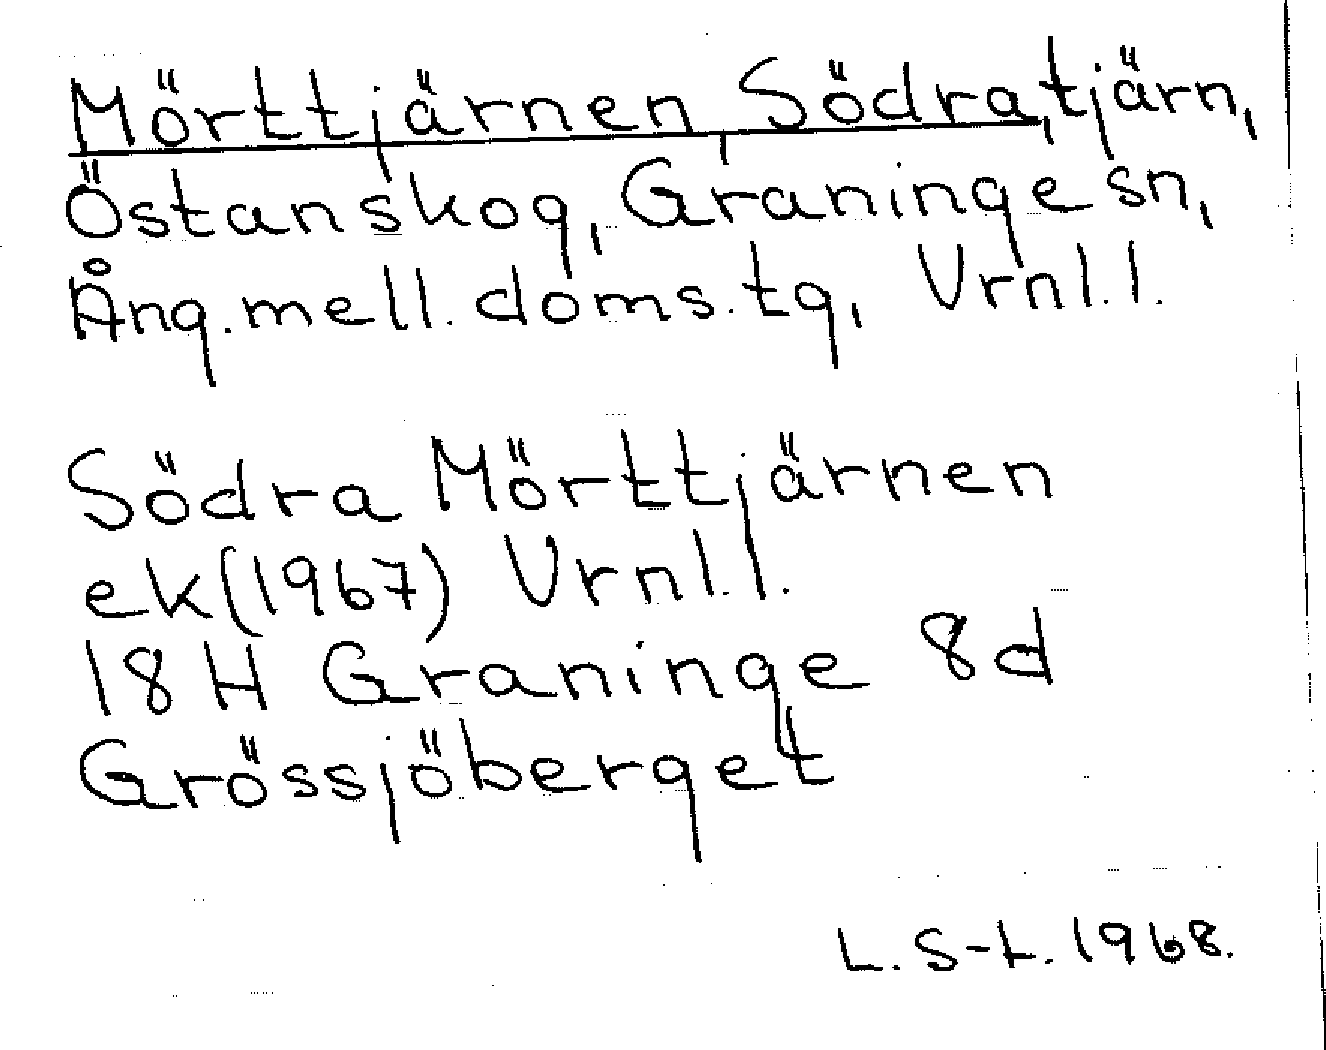 Mörttjärnen, Södra, tjärn,
Östanskog, Graninge sn,
Ång.mell.doms.tg, Vrnl.l.
Södra Mörttjärnen
ek(1967) Vrnl.l.
18H Graninge 8d
Grössjöberget
L.S-t.1968.